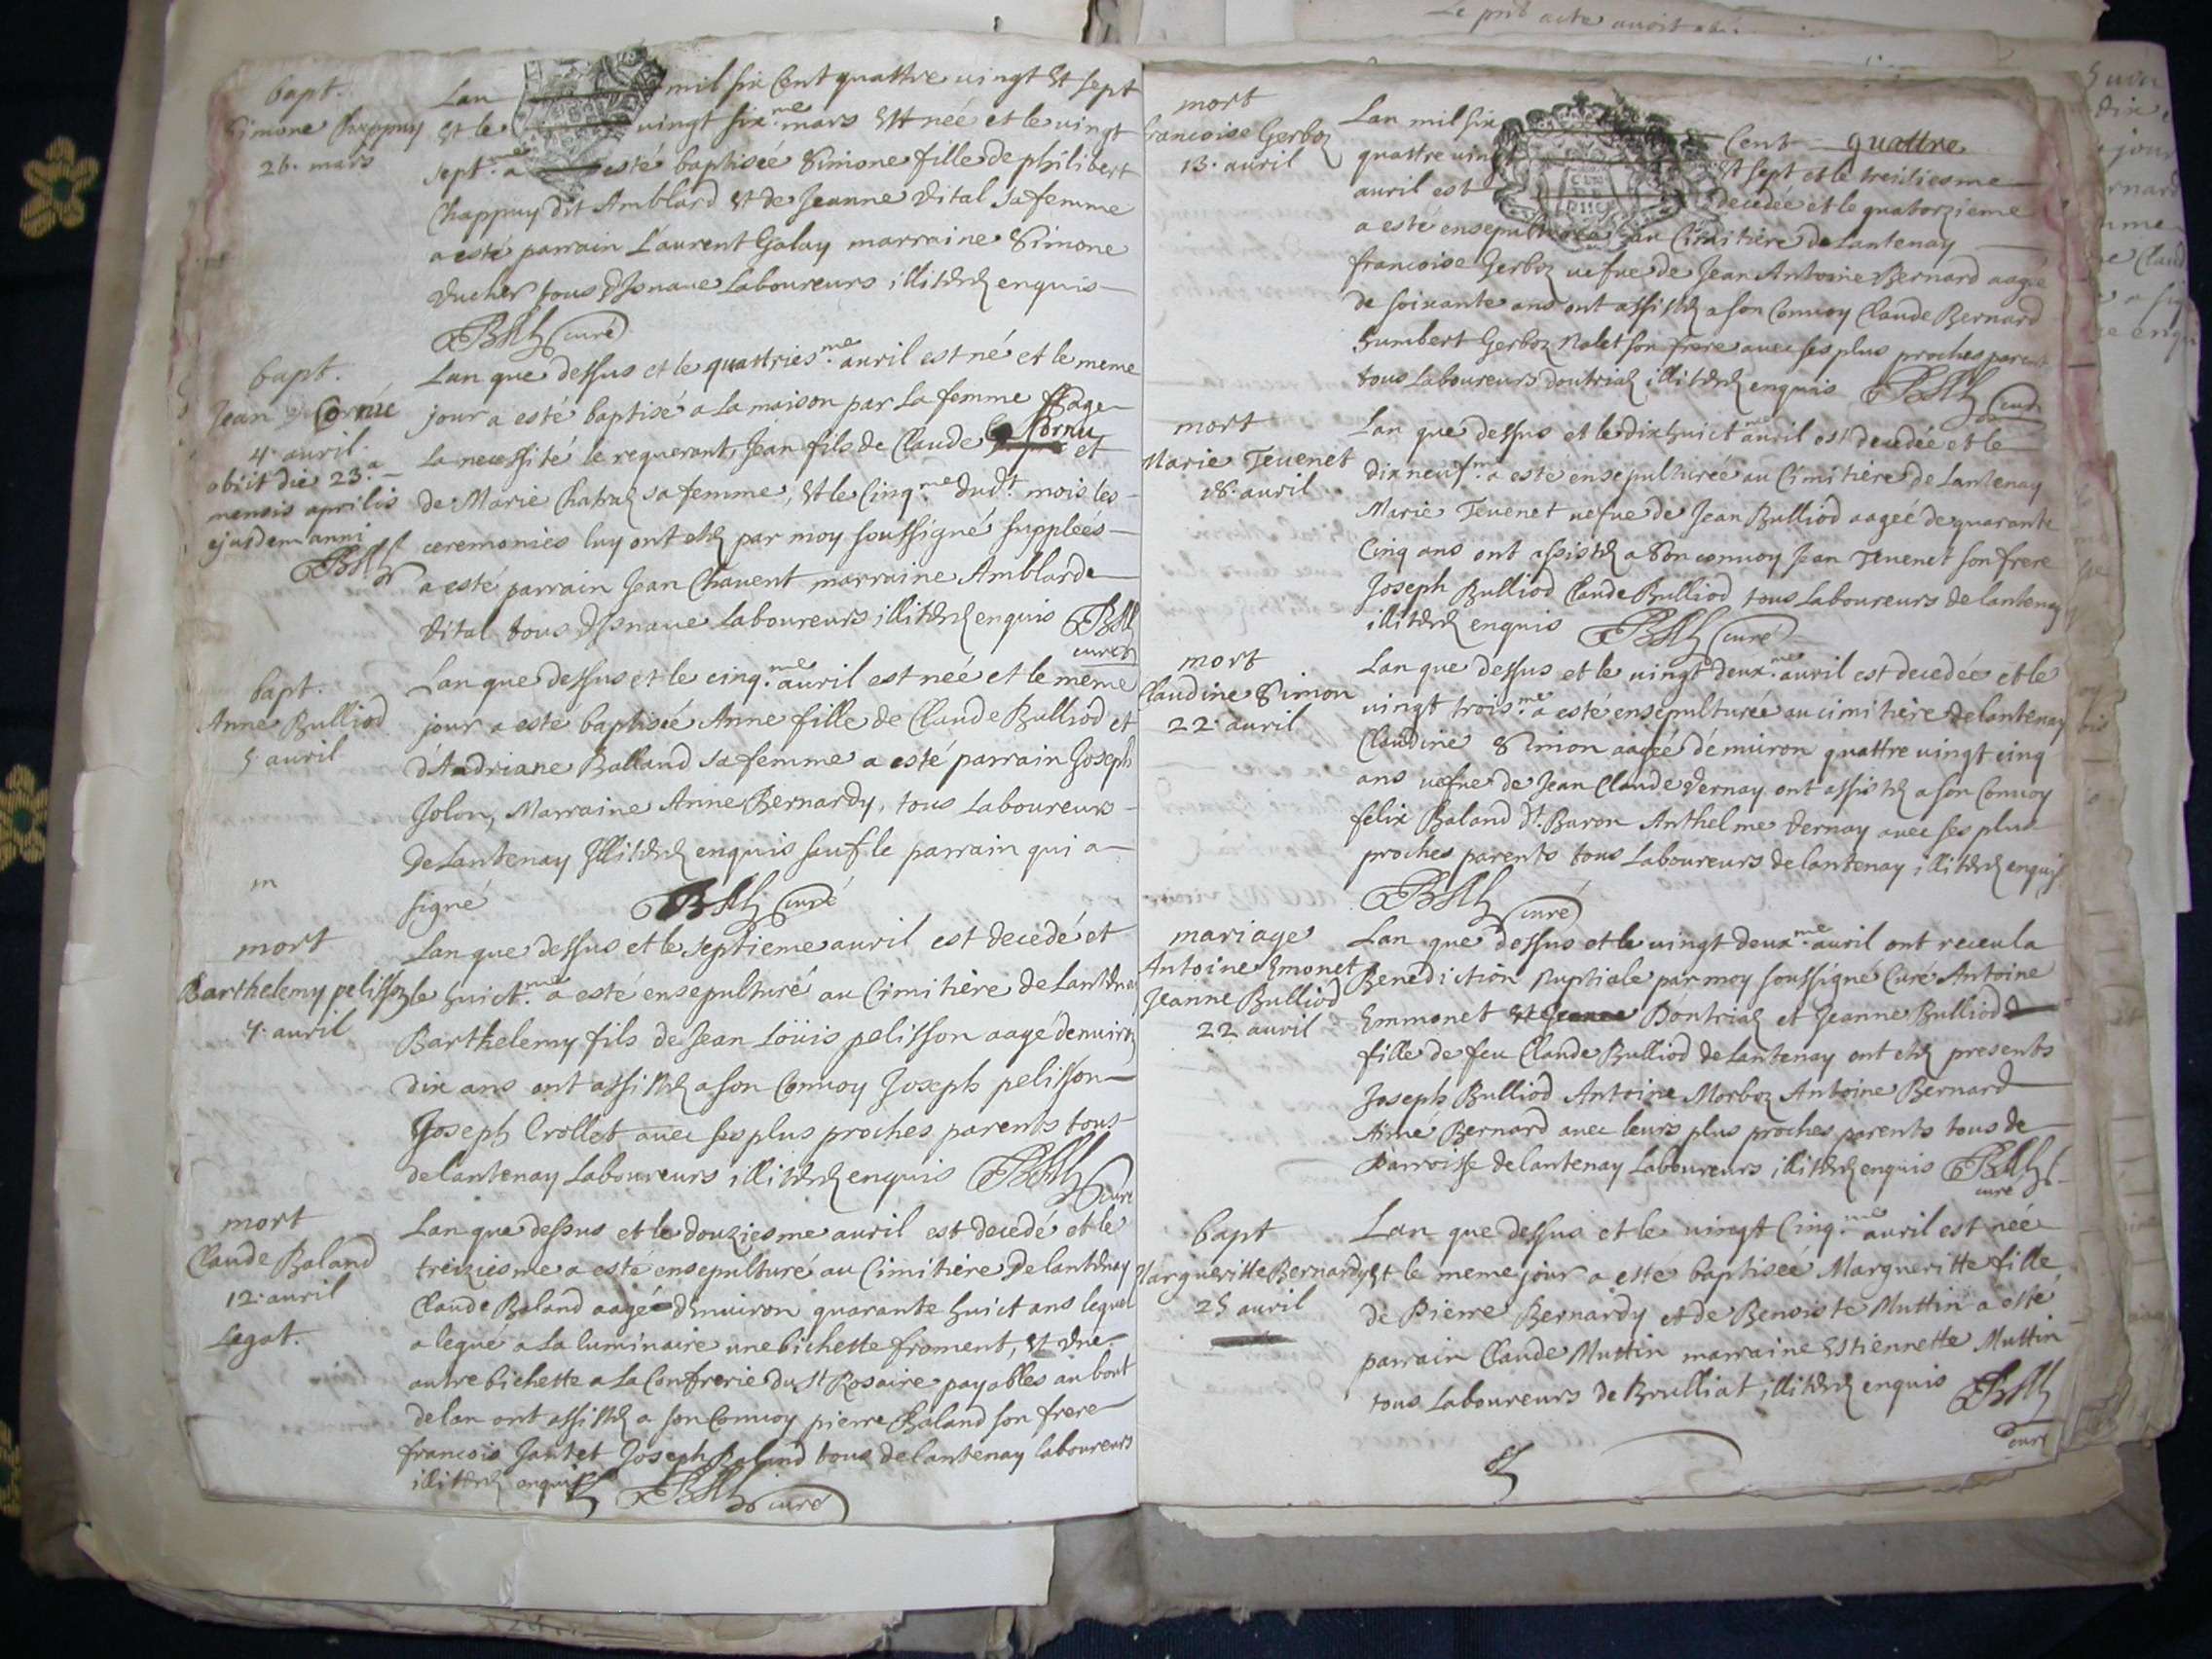 bapt.
Simone Chappuy
26. mars
Lan mil six Cent quattre uingt et sept
et le uingt six.me mars est née et le uingt
sept.me a esté baptisée Simone fille de philibert
Chappuy dit Amblard et de Jeanne Vital sa femme
a esté parrain Laurent Galay marraine Simone
Vucher tous D'Isnaue Laboureurs illiterez enquis
curé
bapt.
Jean Cornu
4. auril
obiit die 23.a
mensis aprilis
ejusdem anni
Lan que dessus et le quattries.me auril est né et le meme
jour a esté baptisé a la maison par la femme sage
la necessité le requerant, Jean fils de Claude Cornu et
de Marie sa femme, et le Cinq.me dud.t mois les
ceremonies luy ont etez par moy soussigné suppleés
a esté parrain Jean Chauent marraine Amblarde
Vital tous D'Isnaue Laboureurs illiterez enquis
curé
bapt.
Anne Bulliod
5. auril
Lan que dessus et le cinq.me auril est née et le meme
jour a esté baptisée Anne fille de Claude Bulliod et
d'Andriane Balland sa femme a esté parrain Joseph
Jolon, Marraine Anne Bernardy, tous Laboureurs
De Lantenay Illiterez enquis sauf le parrain qui a
signé curé
m
mort
Barthelemy pelisson
7. auril
Lan que dessus et le septieme auril est decedé et
le huict.me a esté ensepulturé au Cimitiere de Lantenay
Barthelemy fils de Jean Loüis pelisson aagé denuiron
dix ans ont assistez a son Conuoy Joseph pelisson
Joseph Crollet auec ses plus proches parents tous
de lantenay Laboureurs illiterez enquis curé
mort
Claude Baland
12. auril
Legat.
Lan que dessus et le douziesme auril est decedé et le
treiziesme a esté ensepulturé au Cimitiere De lantenay
Claude Baland aagé denuiron quarante huict ans lequel
a legué a La luminaire une bichette froment, et une
autre bichette a La Confrerie du St Rosaire payables au bout
de lan ont assistez a son Conuoy pierre Baland son frere
francois Jantet Joseph Baland tous de lantenay laboureurs
illiterez enquis curé
Le pnt acte auoit
mort
francoise Gerboz
13. auril
Lan mil six Cent quattre
quattre uingt et sept et le treiziesme
auril est decedée et le quatorzieme
a esté ensepulturée au Cimitiere de Lantenay
francoise Gerboz uefue de Jean Antoine Bernard aagée
de soixante ans ont assistez a son Conuoy Claude Bernard
humbert Gerboz Nalet son frere auec ses plus proches parents
tous Laboureurs doutriaz illiterez enquis curé
mort
Marie Teuenet
18. auril
Lan que dessus et le dixhuict.me auril est decedée et le
dixneuf.me a esté ensepulturée au Cimitiere de Lantenay
Marie Teuenet uefue de Jean Bulliod aageé de quarante
Cinq ans ont assistez a son conuoy Jean Teuenet son frere
Joseph Bulliod Claude Bulliod tous Laboureurs de lantenay
illiterez enquis curé
mort
Claudine Simon
22. auril
Lan que dessus et le uingt deux.me auril est decedée et le
uingt trois.me a esté ensepulturée au cimitiere de lantenay
Claudine Simon aageé denuiron quattre uingt cinq
ans uefue de Jean Claude Vernay ont assistez a son Conuoy
felix Baland d.t Baron Anthelme Vernay auec ses plus
proches parents tous Laboureurs de lantenay illiterez enquis
curé
mariage
Antoine Emonet
Jeanne Bulliod
22 auril
Lan que dessus et le uingt deux.me auril ont receu la
Benediction Nuptiale par moy soussigné Curé Antoine
Emmonet et Jeanne Doutriaz et Jeanne Bulliod
fille de feu Claude Bulliod de Lantenay ont etez presents
Joseph Bulliod Antoine Morboz Antoine Bernard
Aimé Bernard auec leurs plus proches parents tous de
Parroisse de lantenay Laboureurs illiterez enquis
curé
bapt
Margueritte Bernardy
25 auril
Lan que dessus et le uingt Cinq.me auril est née
et le meme jour a esté baptisée Margueritte fille
de Pierre Bernardy et de Benoiste Muttin a esté
parrain Claude Muttin marraine Estiennette Muttin
tous Laboureurs de Brulliat illiterez enquis
curé